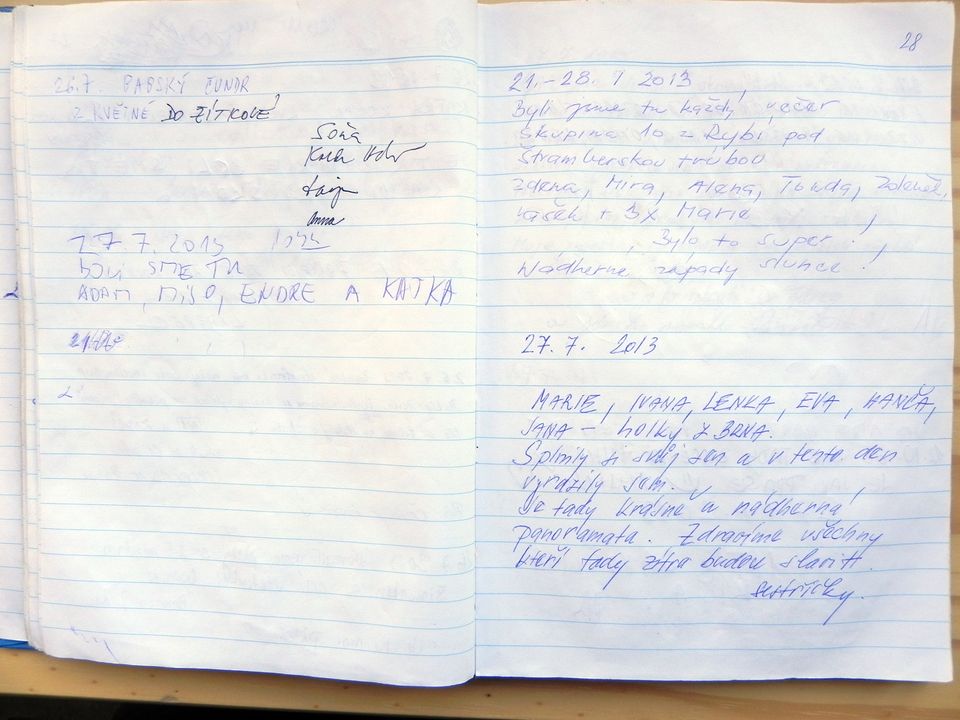 26.7. BABSKÝ ČUNDR
Z KVĚTNÉ DO ŽÍTKOVÉ!
Soňa
Anna
27.7.2013
BOLI SME TU
ADAM, MIŠO, ENDRE A KATKA
28
21.-28. 7 2013
Byli jsme tu každý večer
skupina 10 z Rybí pod
Štramberskou trúbou
Zdena, Mira, Alena, Tonda, Zdeněk,
Vašek + 3x Marie
Bylo to super!
Nádherné západy slunce!
27.7. 2013
MARIE, IVANA, LENKA, EVA, HANČA,
JANA – holky z BRNA.
Splnily si svůj sen a v tento den
vyrazily sem.
Je tady krásně a nádherná
panoramata. Zdravíme všechny
kteří tady zítra budou slavit.
sestřičky.